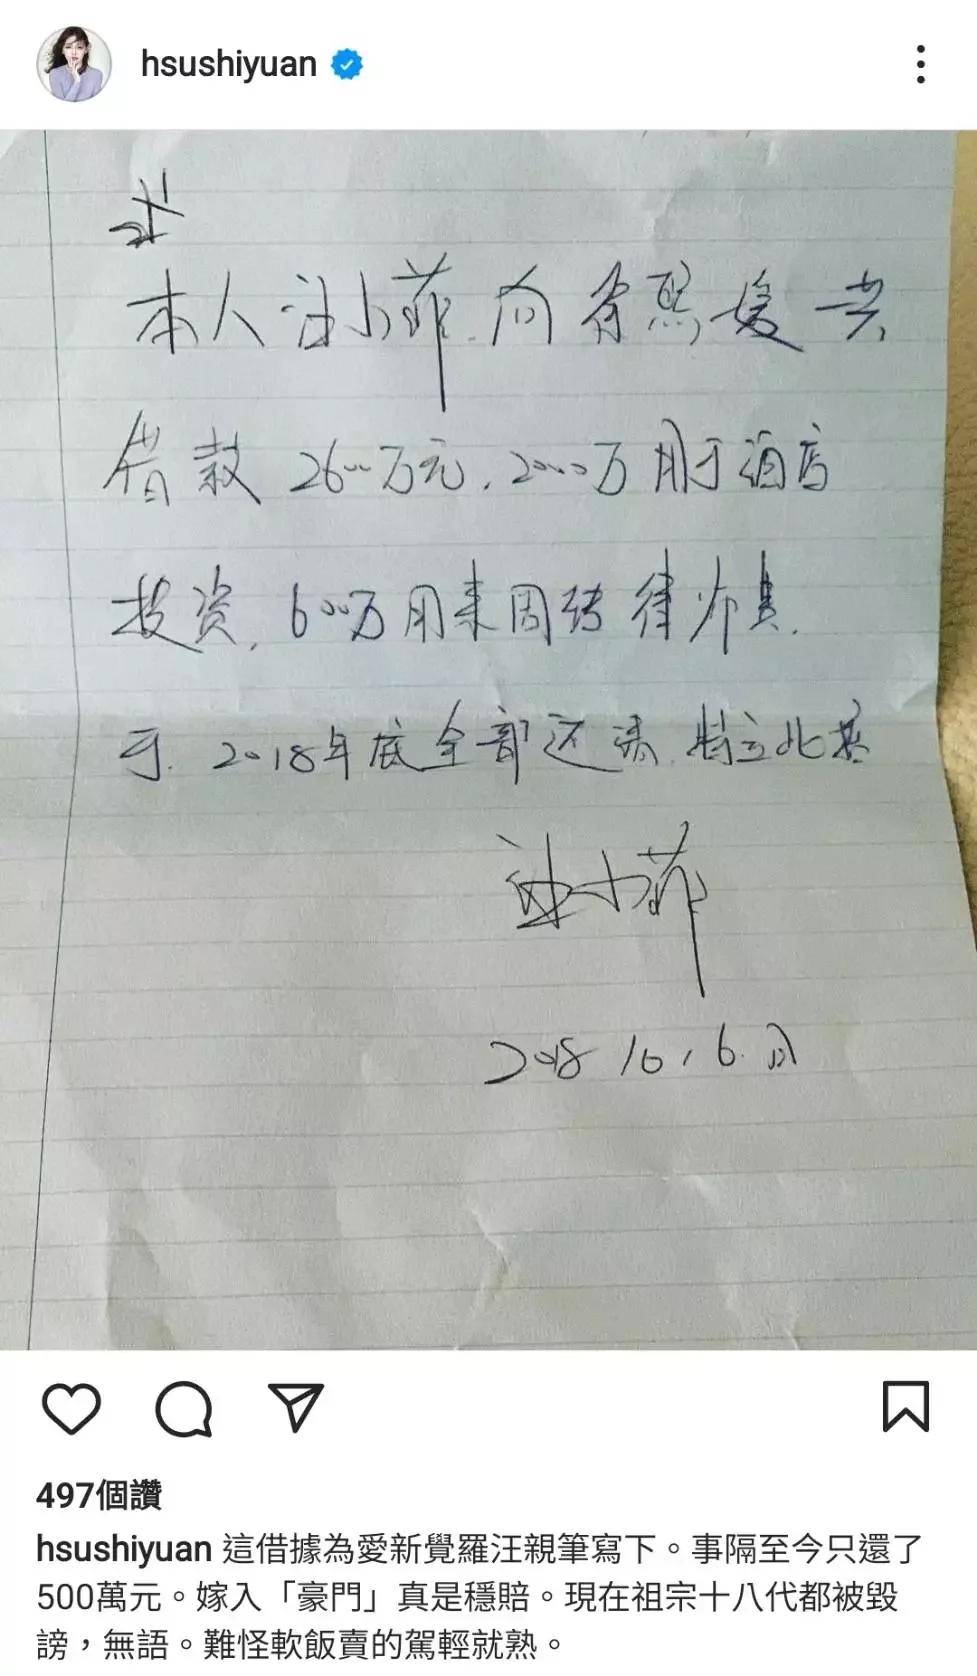 hsushiyuan
本人汪小菲.向徐熙媛共
借款2600万元,2000万用于酒店
投资,600万用来周转律师费.
于.2018年底全部还清.特立此据
汪小菲
2018 10, 6.
497個讚
hsushiyuan 這借據為愛新覺羅汪親筆寫下。事隔至今只還了
500萬元。嫁入「豪門」真是穩賠。現在祖宗十八代都被毀
謗,無語。難怪軟飯賣的駕輕就熟。